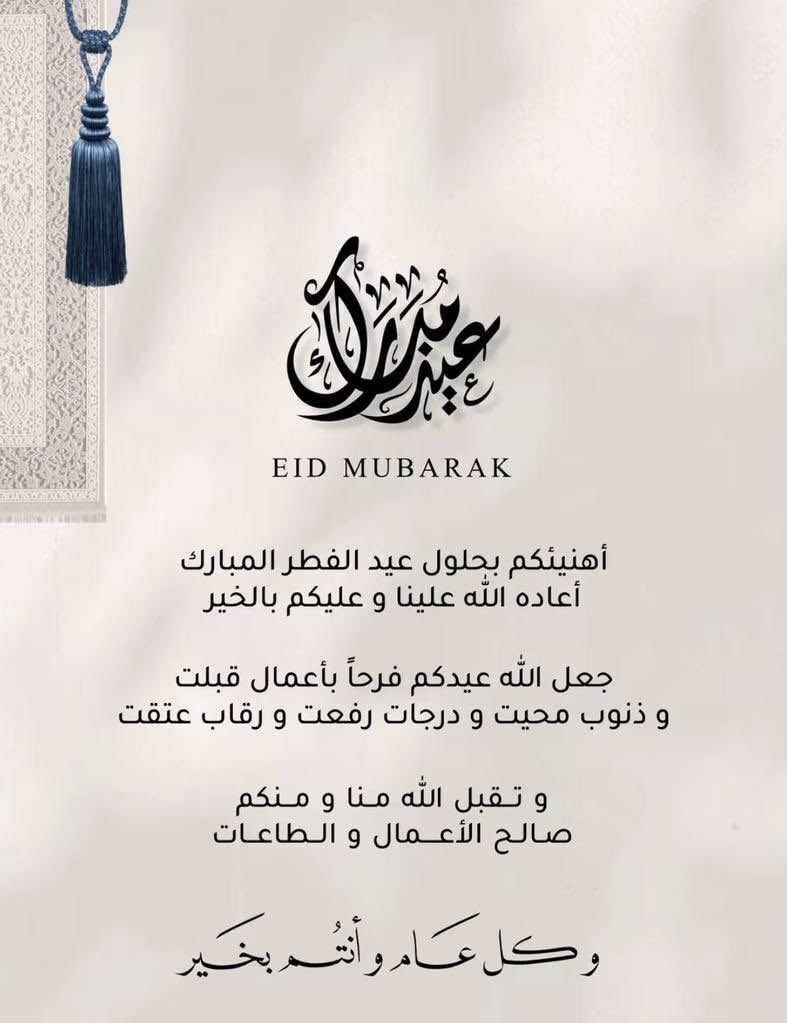 عيد مبارك
EID MUBARAK
أهنيئكم بحلول عيد الفطر المبارك
أعاده الله علينا و عليكم بالخير
جعل الله عيدكم فرحاً بأعمال قبلت
و ذنوب محيت و درجات رفعت و رقاب عتقت
و تـقبل الله مـنا و مـنكم
صالـح الأعـمال و الـطاعـات
و كل عام و أنتُم بخير